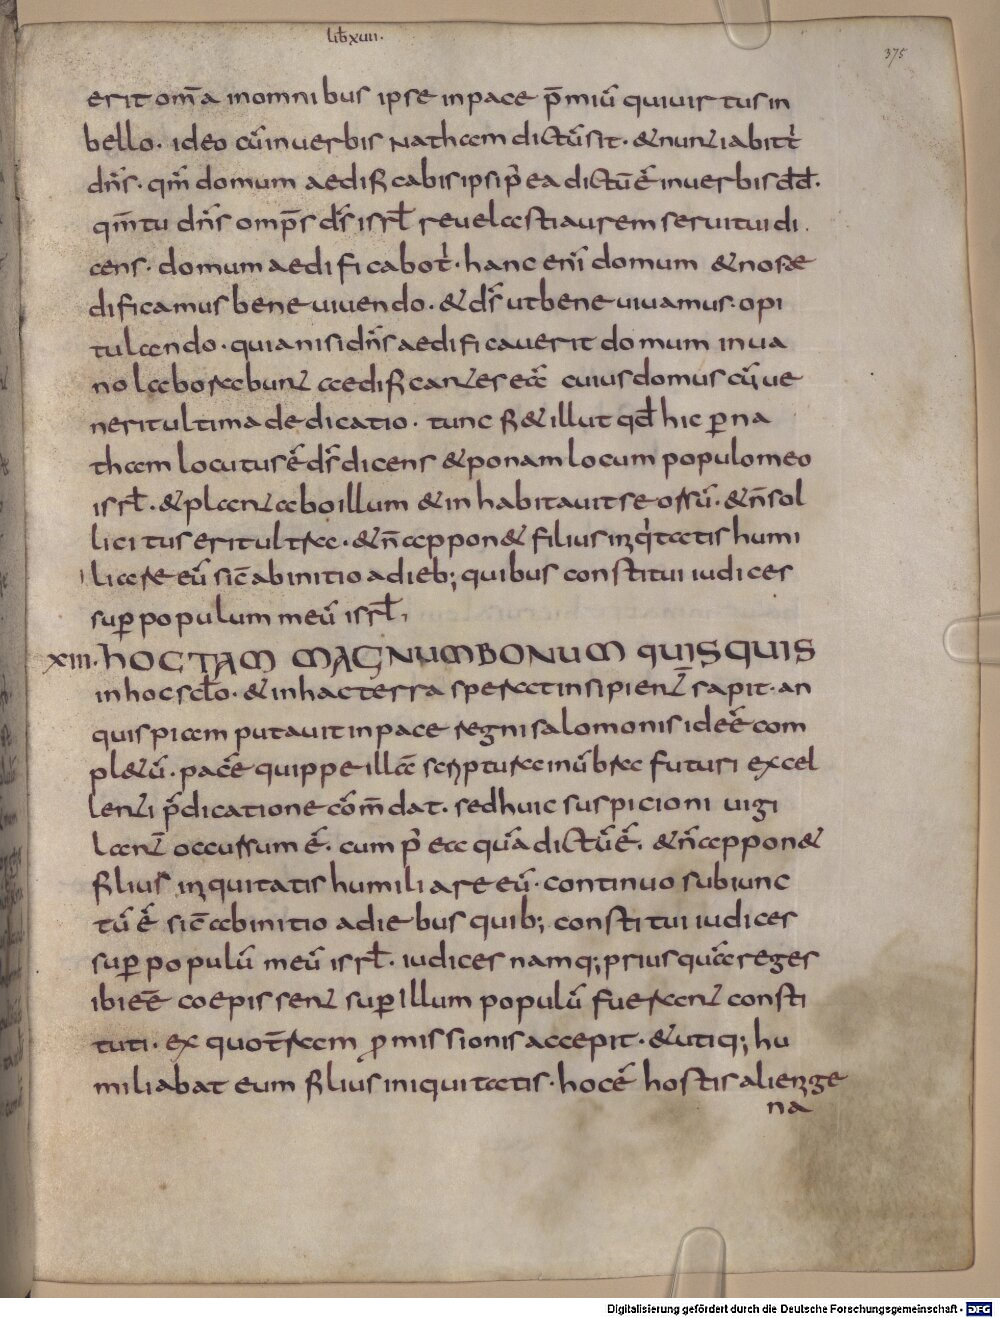 lib xuii.
375
erit om̄a inomnibus ipse inpace p̄miū quiuirtus in
bello. ideo cū inuerbis nathaem dictū sit. & nuntiabit t̉
dn̄s. qm̄ domum aedificabis ipsi p̉ ea dictū ē inuerbis dd̄.
qm̄ tu dn̄s omp̄s ds̄ isrl̄ reuelasti aurem serui tui di
cens. domum aedificabo t̉. hanc eni̅ domum & nos ae
dificamus bene uiuendo. & ds̄ ut bene uiuamus. opi
tulando. quia nisi dn̄s aedificauerit domum inua
no laborabunt aedificantes eā cuius domus cū ue
nerit ultima dedicatio. tunc fi& illut qd̄ hic ꝑ na
tham locutus ē ds̄ dicens & ponam locum populo meo
isrl̄. & plantabo illum & inhabitauit seorsū. & n̄ sol
licitus erit ultra. & n̄ appon& filius iniq̉tatis humi
liare eū sic̄ ab initio a dieb; quibus constitui iudices
suꝑ populum meū isrl̄,
xiii. HOC TAM MAGNUM BONUM QUISQUIS
inhoc sclo. & inhac terra sperat insipient̄ sapit. an
quispiam putauit inpace regni salomonis id eē com
pl&ū. pacē quippe illā scriptura inūbra futuri excel
lenti p̄dicatione cōm̄dat. sed huic suspicioni uigi
lant̄ occursum ē. cum p̉ ea quā dictū ē. & n̄ appon&
filius iniquitatis humiliare eū. continuo subiunc
tū ē sic̄ ab initio a diebus quib; constitui iudices
suꝑ populū meū isrl̄. iudices namq; prius quā reges
ibi eē coepissent suꝑ illum populū fuerant consti
tuti. ex quo t̄ram ꝓmissionis accepit. & utiq; hu
miliabat eum filius iniquitatis. hoc ē hostis alienige
na
Digitalisierung gefördert durch die Deutsche Forschungsgemeinschaft - DFG